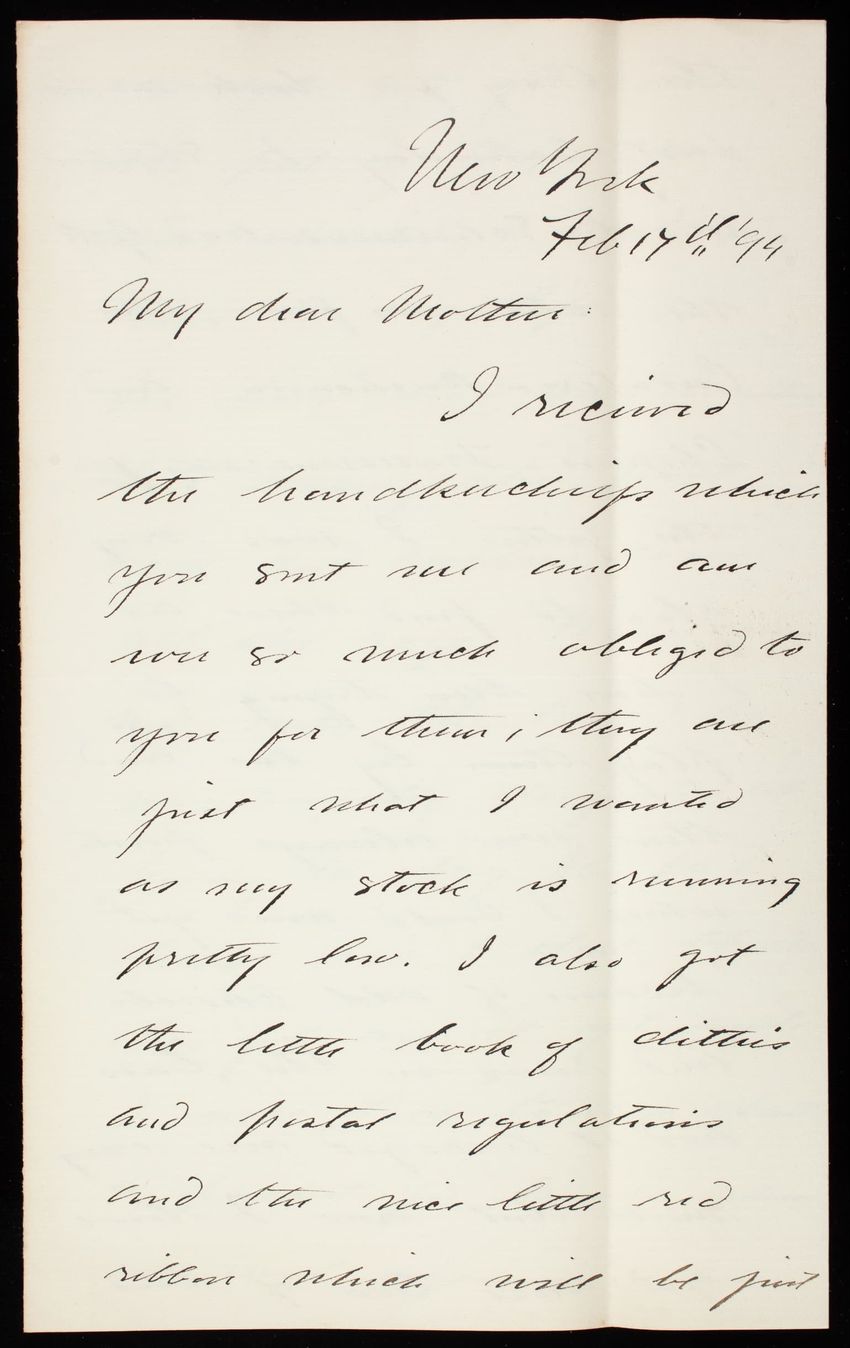 New York
Feb 17th '94
My dear Mother:
I received
the handkerchiefs which
you sent me and am
so much obliged to
you for them; they are
just what I wanted
as my stock is running
pretty low. I also got
the little book of ditties
and postal regulations
and the nice little red
ribbon which will be just